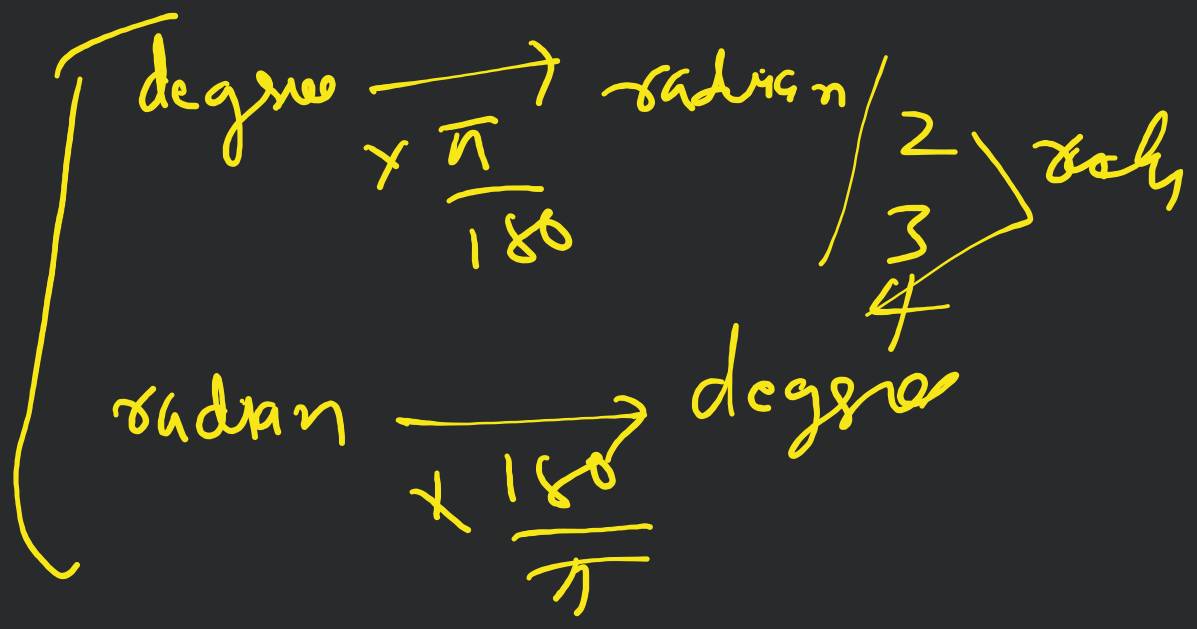 degree → radian
× π/180
2
3
4
radian → degree
× 180/π